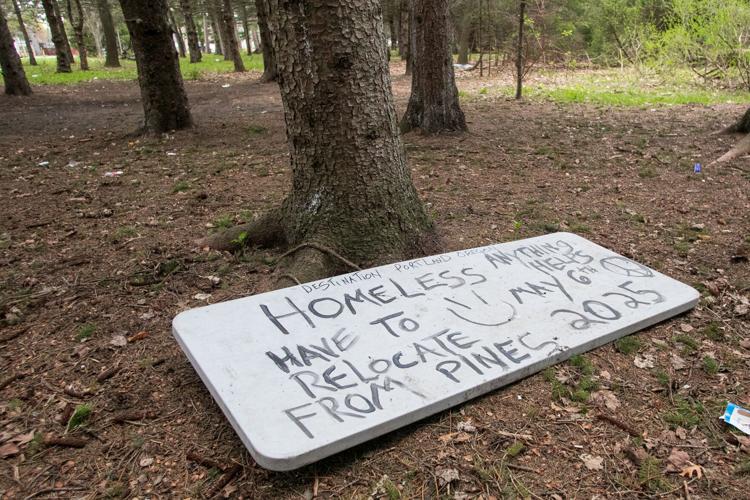 DESTINATION PORTLAND OREGON
HOMELESS ANYTHING HELPS
HAVE TO MAY 6TH
RELOCATE 2025
FROM PINES